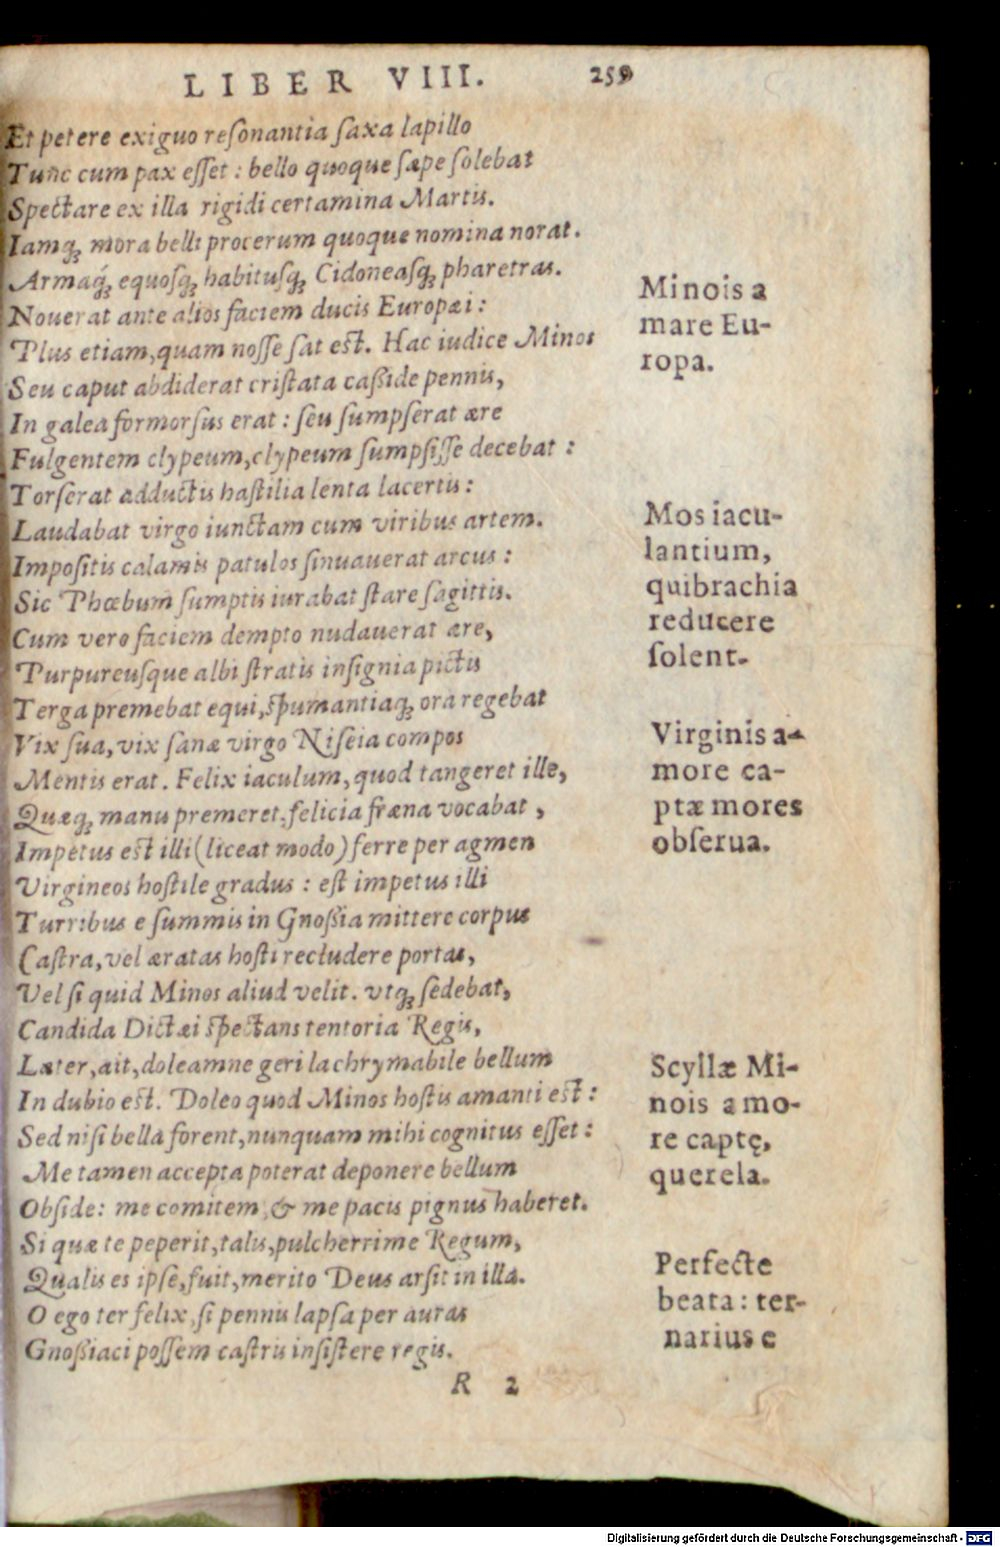 LIBER VIII. 259
Et petere exiguo reſonantia ſaxa lapillo
Tunc cum pax eſſet : bello quoque ſæpe ſolebat
Spectare ex illa rigidi certamina Martis.
Iamq́ꝫ mora belli procerum quoque nomina norat.
Armaq́ꝫ equoſqꝫ habituſqꝫ Cidoneaſqꝫ pharetras.
Nouerat ante alios faciem ducis Europæi :
Plus etiam, quam noſſe ſat est. Hac iudice Minos
Seu caput abdiderat criſtata caßide pennis,
In galea formorſus erat : ſeu ſumpſerat ære
Fulgentem clypeum, clypeum ſumpſiſſe decebat :
Torſerat adductis haſtilia lenta lacertis :
Laudabat virgo iunctam cum viribus artem.
Impoſitis calamis patulos ſinuauerat arcus :
Sic Phœbum ſumptis iurabat ſtare ſagittis.
Cum vero faciem dempto nudauerat ære,
Purpureuſque albi ſtratis inſignia pictis
Terga premebat equi, ſpumantiaqꝫ ora regebat
Vix ſua, vix ſanæ virgo Niſeia compos
Mentis erat. Felix iaculum, quod tangeret ille,
Quæqꝫ manu premeret, felicia fræna vocabat ,
Impetus est illi (liceat modo) ferre per agmen
Virgineos hoſtile gradus : eſt impetus illi
Turribus e ſummis in Gnoßia mittere corpus
Caſtra, vel æratas hoſti recludere portas,
Vel ſi quid Minos aliud velit. vtqꝫ ſedebat,
Candida Dictæi ſpectans tentoria Regis,
Læter, ait, doleamne geri lachrymabile bellum
In dubio est. Doleo quod Minos hoſtis amanti est :
Sed niſi bella forent, nunquam mihi cognitus eſſet :
Me tamen accepta poterat deponere bellum
Obſide : me comitem, & me pacis pignus haberet.
Si quæ te peperit, talis, pulcherrime Regum,
Qualis es ipſe, fuit, merito Deus arſit in illa.
O ego ter felix, ſi pennis lapſa per auras
Gnoßiaci poſſem caſtris inſiſtere regis.
R 2
Minois a
mare Eu-
ropa.
Mos iacu-
lantium,
quibrachia
reducere
ſolent.
Virginis a-
more ca-
ptæ mores
obſerua.
Scyllæ Mi-
nois amo-
re captę,
querela.
Perfecte
beata : ter-
narius e
Digitalisierung gefördert durch die Deutsche Forschungsgemeinschaft - DFG